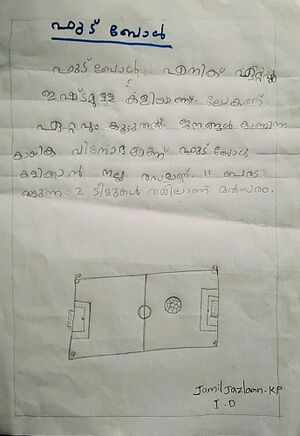 ഫുട് ബോൾ
ഫുട് ബോൾ എനിക് ഏറ്റവും
ഇഷ്ട്ടമുള്ള കളിയാണ്. ലോകത്ത്
ഏറ്റവും കൂടുതൽ ജനങ്ങൾ കാണുന്ന
കായിക വിനോദമാണ് ഫുട് ബോൾ
കളിക്കാൻ നല്ല രസമാണ്. 11 പേരട
ങ്ങുന്ന 2 ടീമുകൾ തമ്മിലാണ് മൽസരം.
Jamil Jazlaan.KP
I-D